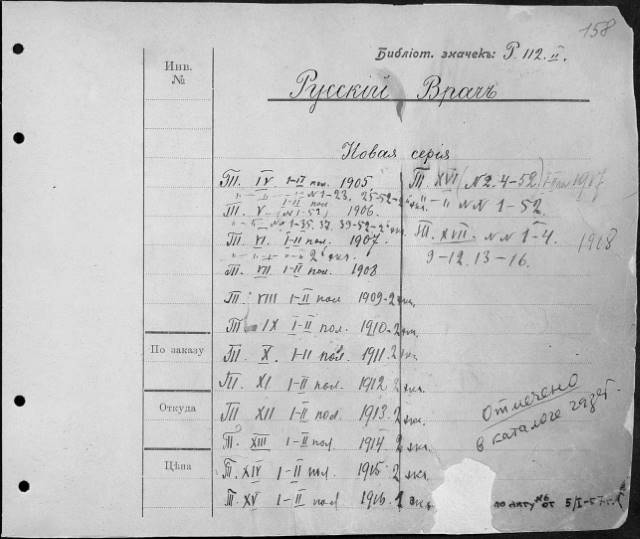 158
Библіот. значекъ: Р 112. II.
Инв.
№
Русскій Врачъ
Новая серія
Т. IV I-II пол. 1905
№ 1-23, 25-52-2 экз.
I-II пол
Т. V (№ 1-52) 1906.
№ 1-35, 37, 39-52-2 экз.
Т. VI. I-II пол. 1907.
2 экз.
Т. VII I-II пол. 1908
Т. VIII I-II пол 1909-2 экз.
Т. IX I-II пол. 1910-2 экз.
Т. X. I-II пол. 1911. 2 экз.
Т. XI I-II пол. 1912. 2 экз.
Т. XII I-II пол. 1913. 2 экз.
Т. XIII I-II пол 1914 2 экз.
Т. XIV I-II пол. 1915 2 экз.
Т. XV I-II пол 1916. 2 экз.
Т. XVI (№ 2. 4-52) I-II пол 1917
-"- №№ 1-52.
Т. XVII. №№ 1-4. 1918
9-12. 13-16.
По заказу
Откуда
Цѣна
Отмечено
в каталоге газет.
по акту №6 от 5/I-57 г.